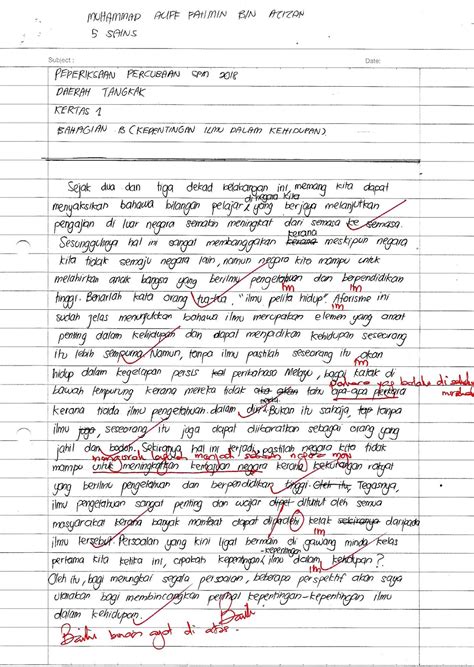 MUHAMMAD ALIFF FAHMIN BIN AZIZAN
5 SAINS
Subject : Date:
PEPERIKSAAN PERCUBAAN SPM 2018
DAERAH TANGKAK
KERTAS 1
BAHAGIAN B (KEPENTINGAN ILMU DALAM KEHIDUPAN)
Sejak dua dan tiga dekad belakangan ini, memang kita dapat
di negara kita
menyaksikan bahawa bilangan pelajar yang berjaya melanjutkan
pengajian di luar negara semakin meningkat dari semasa ke semasa.
kerana
Sesungguhnya hal ini sangat membanggakan kerana meskipun negara
kita tidak semaju negara lain, namun negara kita mampu untuk
melahirkan anak bangsa yang berilmu pengetahuan dan berpendidikan
tinggi. Benarlah kata orang tua-tua, "ilmu pelita hidup". Aforisme ini
sudah jelas menunjukkan bahawa ilmu merupakan elemen yang amat
penting dalam kehidupan dan dapat menjadikan kehidupan seseorang
itu lebih sempurna. Namun, tanpa ilmu pastilah seseorang itu akan
hidup dalam kegelapan persis kata peribahasa Melayu, bagai katak di
bawah tempurung kerana mereka tidak tahu apa-apa perkara
kerana tiada ilmu pengetahuan dalam diri. Bukan itu sahaja, tanpa
ilmu seseorang itu juga dapat diibaratkan sebagai orang yang
jahil dan bodoh. Sekiranya hal ini terjadi, pastilah negara kita tidak
mampu untuk meningkatkan kemajuan negara kerana kekurangan rakyat
yang berilmu pengetahuan dan berpendidikan tinggi. Oleh itu, Tegasnya,
ilmu pengetahuan sangat penting dan wajar dituntut oleh semua
masyarakat kerana banyak manfaat dapat diperolehi kelak daripada
ilmu tersebut. Persoalan yang kini ligat bermain di gawang minda kelas
-kepentingan
pertama kita ketika ini, apakah kepentingan ilmu dalam kehidupan?
Oleh itu, bagi merungkai segala persoalan, beberapa perspektif akan saya
utarakan bagi membincangkan perihal kepentingan-kepentingan ilmu
dalam kehidupan.
Baiki
Baiki binaan ayat di atas.